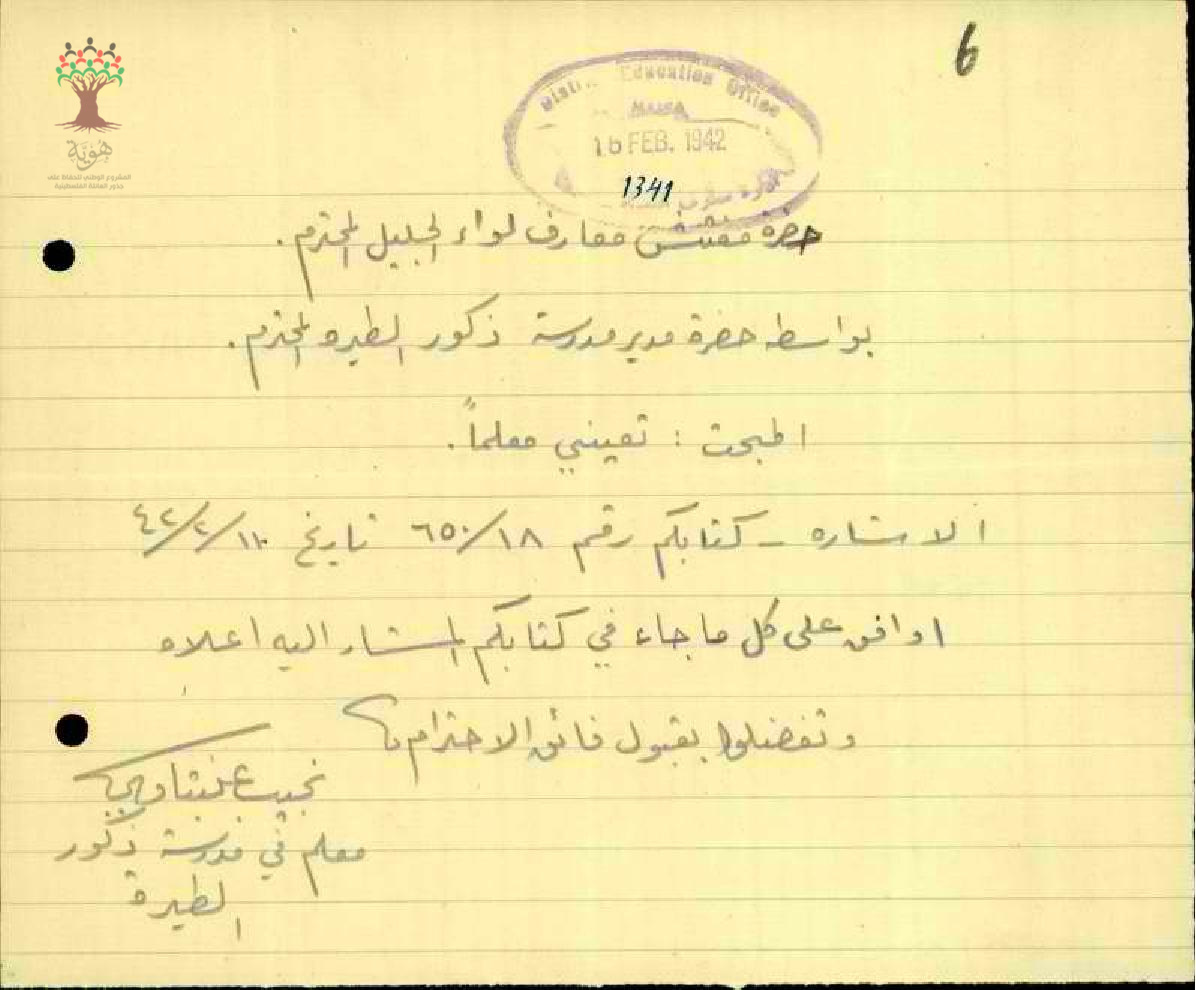 6
هوية
المشروع الوطني للحفاظ على
جذور العائلة الفلسطينية
District Education Office
HAIFA
16 FEB. 1942
1341
حضرة مفتش معارف لواء الجليل المحترم.
بواسطه حضرة مدير مدرسة ذكور الطيره المحترم.
المبحث : تعييني معلماً.
الاشاره – كتابكم رقم ٦٥٠/١٨ تاريخ ١١/٢/٤٢
اوافق على كل ما جاء في كتابكم المشار اليه اعلاه
وتفضلوا بقبول فائق الاحترام
نجيب عنبتاوي
معلم في مدرسة ذكور
الطيرة